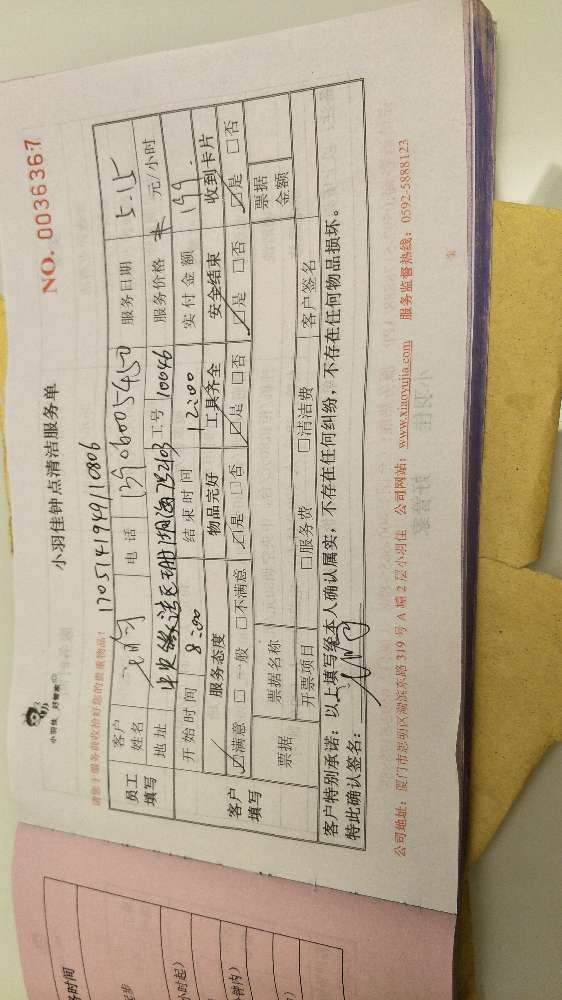 小羽佳 好管家
小羽佳钟点清洁服务单
NO. 0036367
请您于服务前收拾好您的贵重物品!
1705141949110806
员工填写
客户姓名
电话
服务日期 5.15
地址
工号 10046
服务价格 元/小时
开始时间 8:00
结束时间 12:00
实付金额 199
客户填写
服务态度 物品完好 工具齐全 安全结束 收到卡片
☑满意 □一般 □不满意 ☑是 □否 ☑是 □否 ☑是 □否 ☑是 □否
票据
票据名称
票据金额
开票项目
□服务费 □清洁费
客户签名
客户特别承诺:以上填写经本人确认属实,不存在任何纠纷,不存在任何物品损坏。
特此确认签名:
公司地址:厦门市思明区湖滨东路319号A塬2层小羽佳 公司网站:www.xiaoyujia.com 服务监督热线:0592-5888123
务时间
小时起)